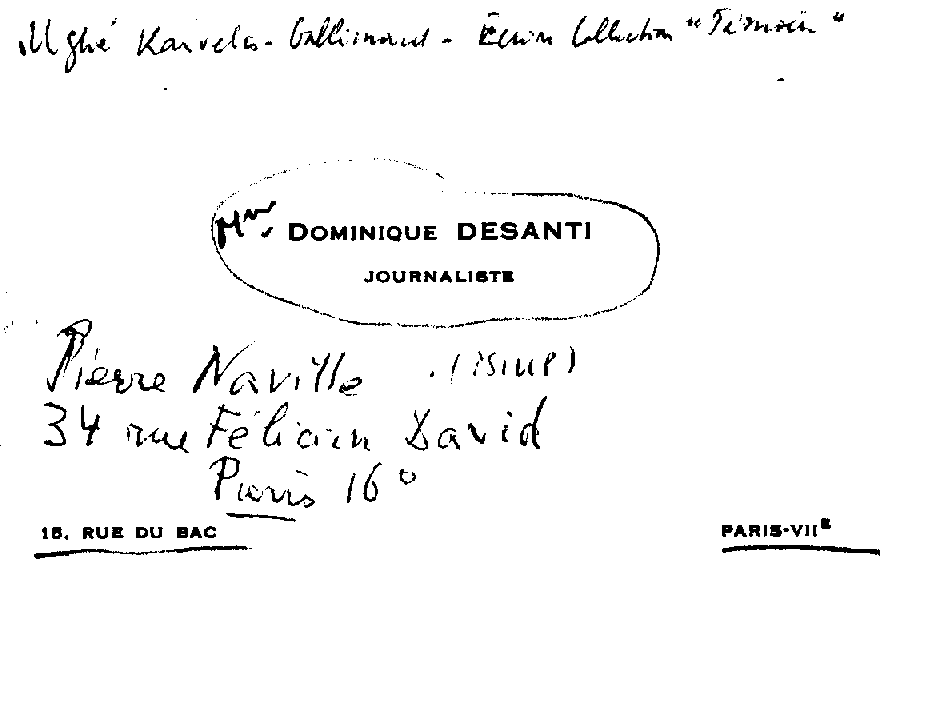 Karvelis - Gallimard - Collection "Témoin"
Mme DOMINIQUE DESANTI
JOURNALISTE
Pierre Naville
34 rue Félicien David
Paris 16°
15, RUE DU BAC
PARIS-VIIE